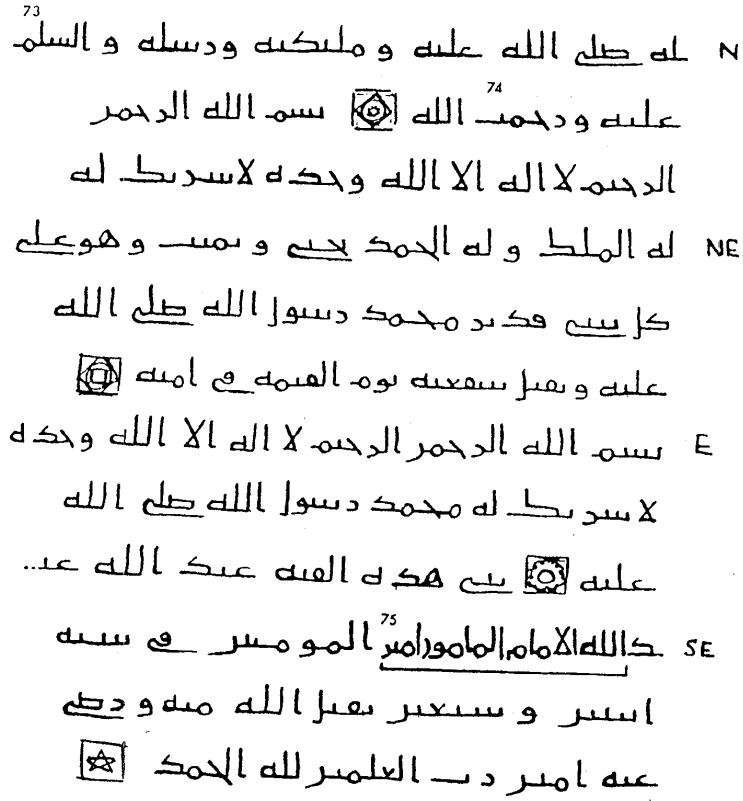 N له صلى الله عليه و مليكته ورسله و السلم 73
عليه ورحمت 74 الله بسم الله الرحمن
الرحيم لا اله الا الله وحده لا شريك له
NE له الملك و له الحمد يحيي و يميت و هو على
كل شي قدير محمد رسول الله صلى الله
عليه و تقبل شفعته يوم القيمه في امته
E بسم الله الرحمن الرحيم لا اله الا الله وحده
لا شريك له محمد رسول الله صلى الله
عليه بنى هذه القبه عبد الله عبـ..
SE ـد الله الامام المامون امير 75 المومنين في سنه
اثنين و سبعين تقبل الله منه و رضي
عنه امين رب العلمين لله الحمد